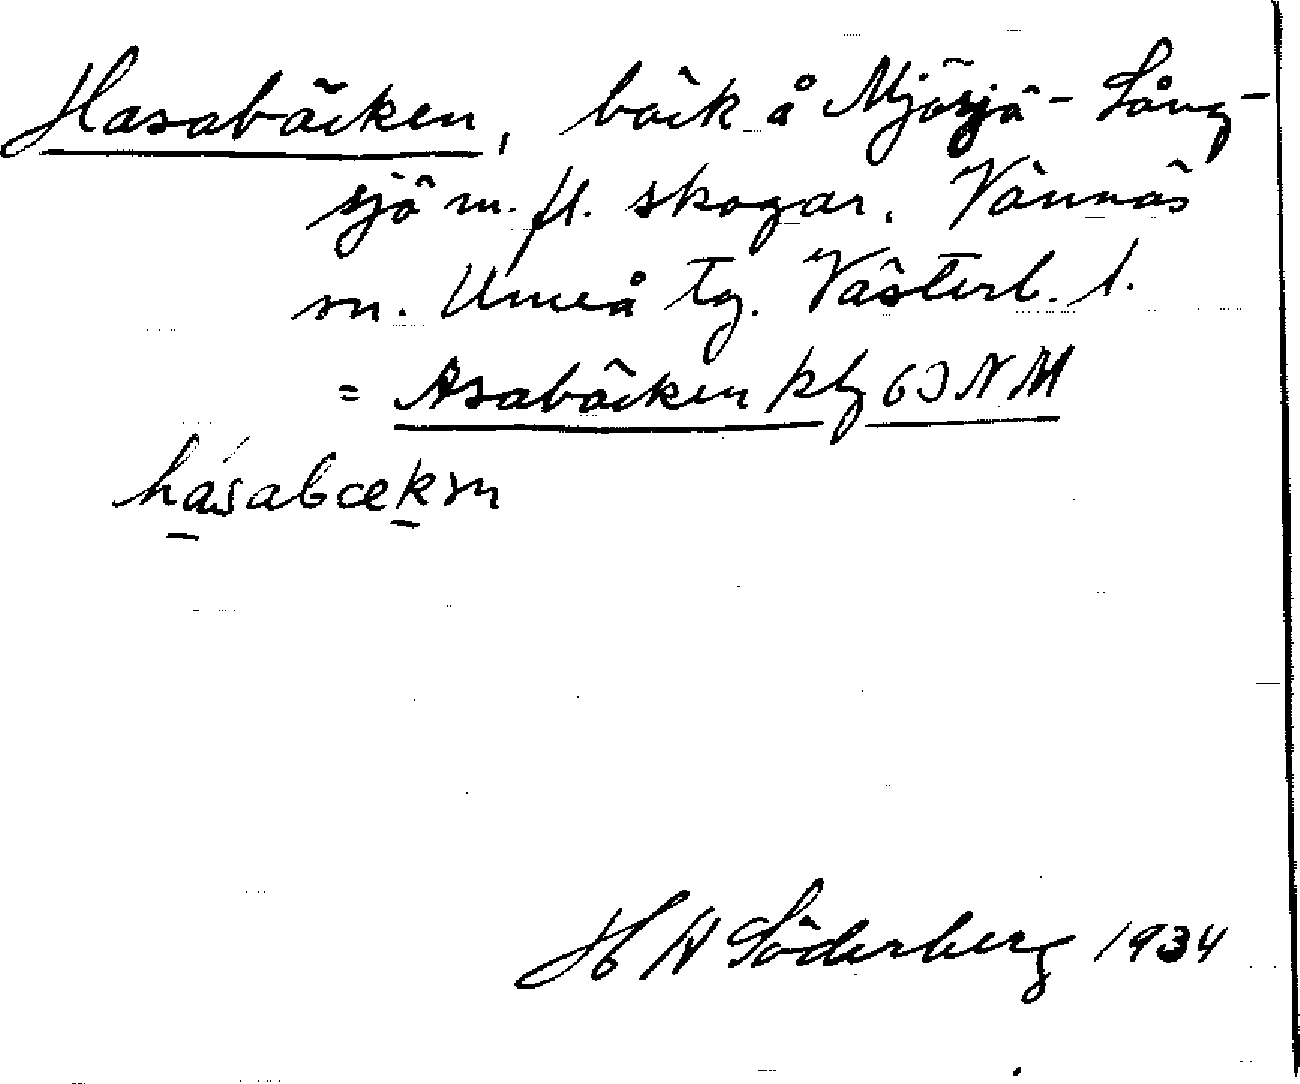 Hasabäcken, bäck å Mjösjö- Lång-
sjö m. fl. skogar. Vännäs
sn. Umeå tg. Västerb. l.
= Asabäcken kbl 63 NM
hásabæksn
H A Söderberg 1934